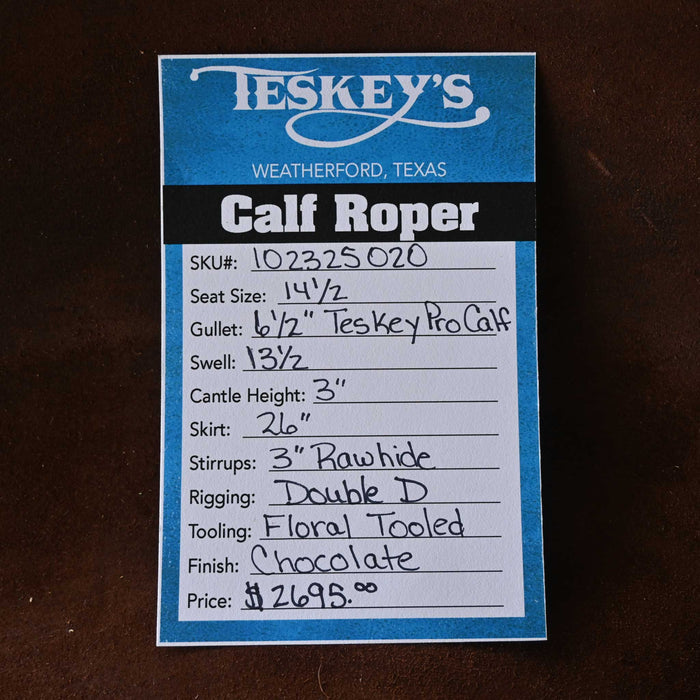 TESKEY'S
WEATHERFORD, TEXAS
Calf Roper
SKU#: 102325020
Seat Size: 14 1/2
Gullet: 6 1/2" Teskey Pro Calf
Swell: 13 1/2
Cantle Height: 3"
Skirt: 26"
Stirrups: 3" Rawhide
Rigging: Double D
Tooling: Floral Tooled
Finish: Chocolate
Price: $2695.00